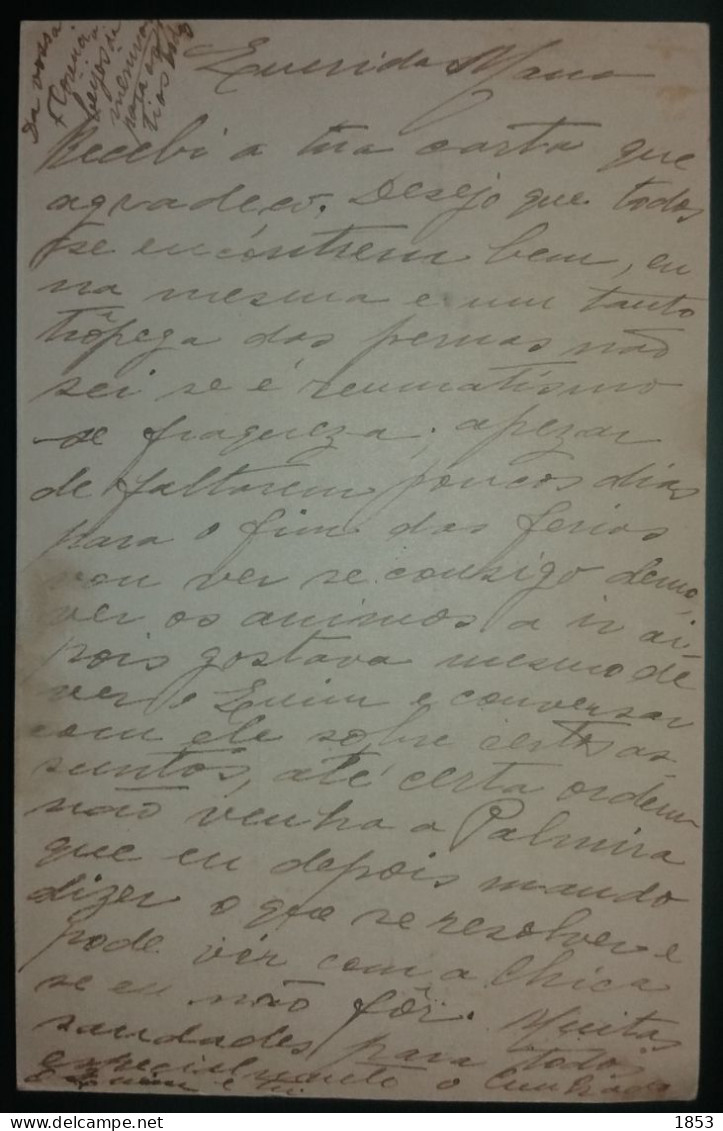 Querida Mana
Recebi a tua carta que
agradeço. Desejo que todos
se encontrem bem, eu
na mesma e um tanto
trôpega das pernas não
sei se é reumatismo
se fraqueza; apezar
de faltarem poucos dias
para o fim das ferias
vou ver se consigo demo
ver os animos a ir ai
pois gostava mesmo de
ver o e conversar
com ele sobre certos as
suntos, até certa ordem
não venha a Palmira
que eu depois mando
dizer o que se resolver e
pode vir com a Chica
se eu não fôr. Muitas
saudades para todos
especialmente o Cunhado
e ti
Da vossa
beijos da
menina
para os
tios
1853